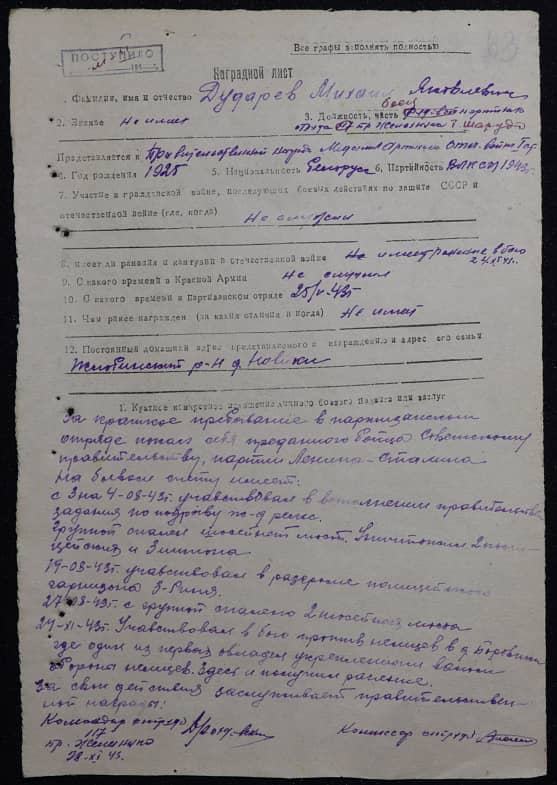 Все графы заполнять полностью
63
ПОСТУПИЛО
Наградной лист
1. Фамилия, имя и отчество Дударев Михаил Яковлевич
2. Звание не имеет 3. Должность, часть боец
отряда 117 пр. Железняка Т. Шаруда
Представляется к Правительственной награде Медалью Партизан отеч. войны
4. Год рождения 1925 5. Национальность Белорус 6. Партийность ВЛКСМ 1943г.
7. Участие в гражданской войне, последующих боевых действиях по защите СССР и
отечественной войне (где, когда) Не служил
8. Имеет ли ранения и контузии в отечественной войне Не имеет ранение в бою
9. С какого времени в Красной Армии Не служил
10. С какого времени в Партизанском отряде 25/V-43г
11. Чем ранее награжден (за какие отличия и когда) Не имеет
12. Постоянный домашний адрес представляемого к награждению и адрес его семьи
Жлобинский р-н д. Новики
1. Краткое конкретное изложение личного боевого подвига или заслуг
За краткое пребывание в партизанском
отряде показал себя преданного бойца Советскому
правительству, партии Ленина-Сталина
На боевом счету имеет:
с 3 на 4-08-43г. участвовал в выполнении правительств.
задания по подрыву ж-д рельс.
Группой спален шоссейный мост. Уничтожили 2 поли-
цейских и 3 шпиона
19-08-43г. участвовал в разгроме полицейского
гарнизона
27-08-43г. с группой спалено 2 шоссейных моста
24-XI-43г. Участвовал в бою против немцев в д.
где один из первых овладел укреплениями
обороны немцев. Здесь и получил ранение.
За свои действия заслуживает правительствен-
ной награды:
Командир отряда
117
пр. Железняка
28-XI 43.
Комиссар отряда